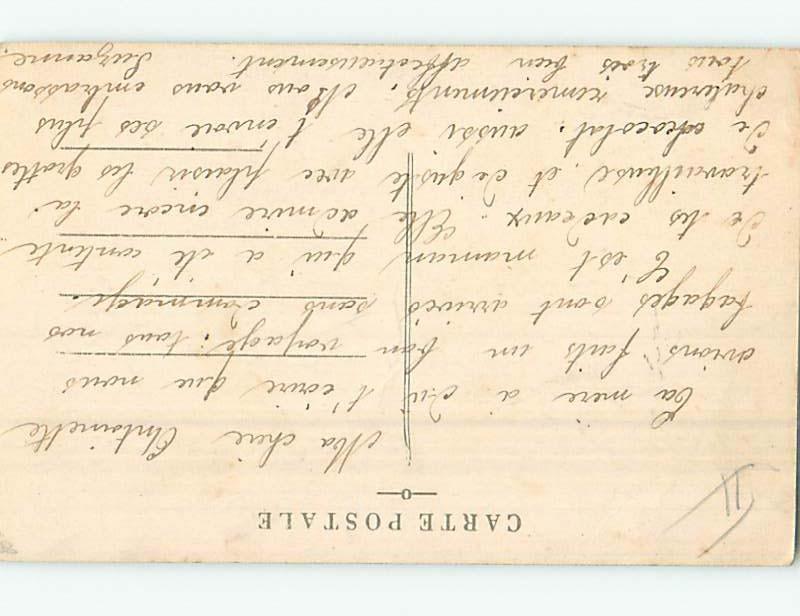 CARTE POSTALE
Ma chère Antoinette
Ta mère a dû t'écrire que nous
avions faits un bon voyage; tous nos
bagages sont arrivés sans dommage.
C'est maman qui a été contente
de tes cadeaux. Elle admire encore ta
travailleuse, et déguste avec plaisir les gouttes
de chocolat. aussi elle t'envoie ses plus
chaleureux remerciements. Nous vous embrassons
tous trois bien affectueusement. Suzanne.
II